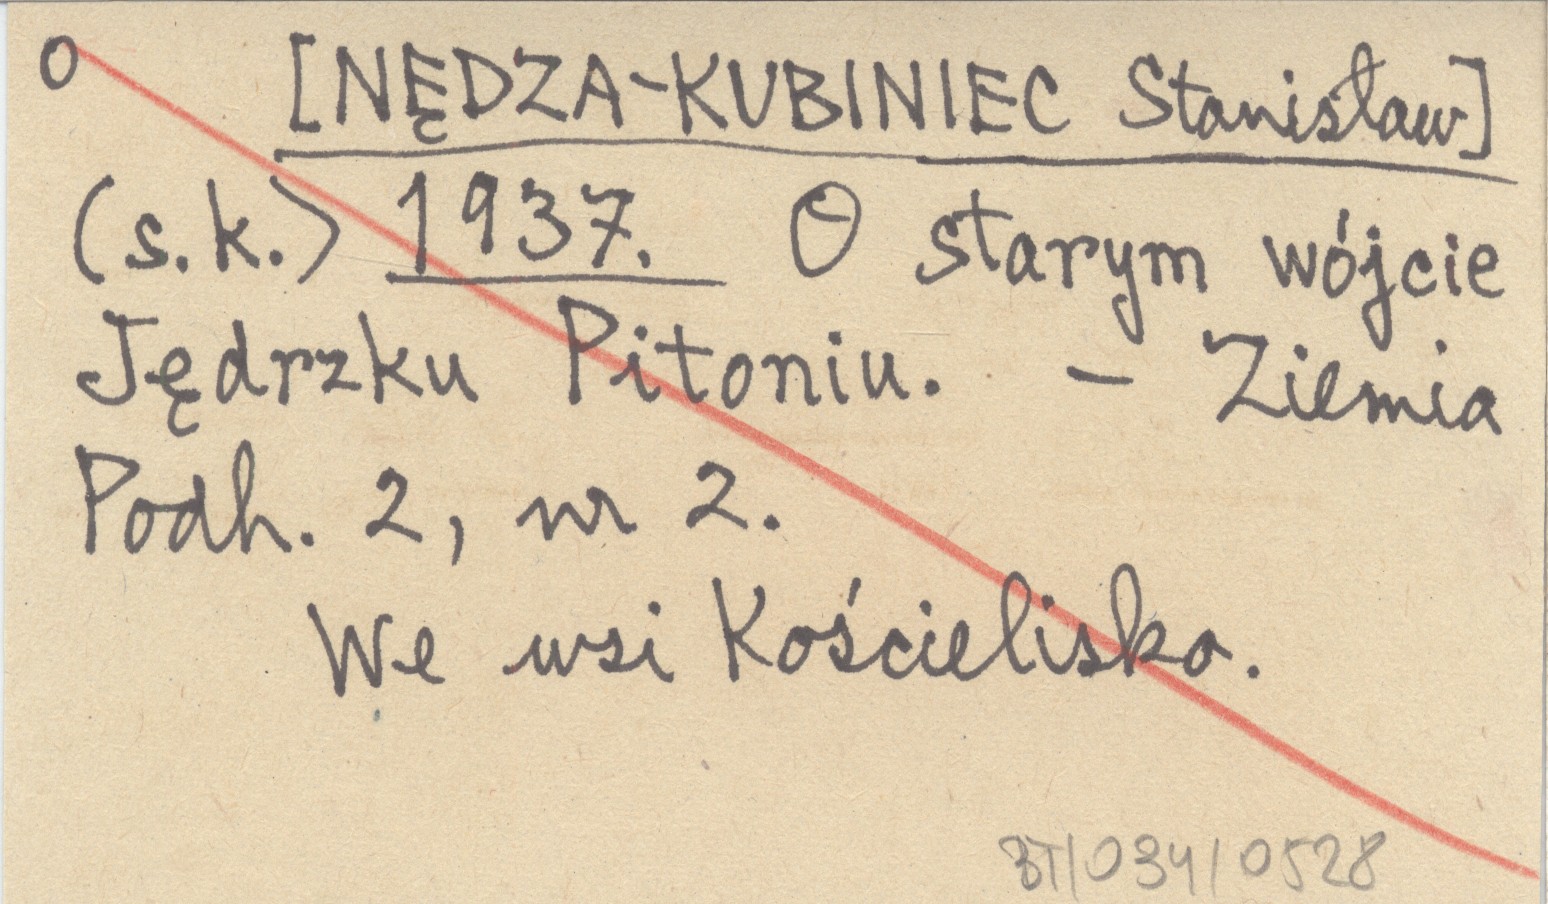 O [NĘDZA-KUBINIEC Stanisław]
(s.k.) 1937. O starym wójcie
Jędrzku Pitoniu. - Ziemia
Podh. 2, nr 2.
We wsi Kościelisko.
BT/034/0528